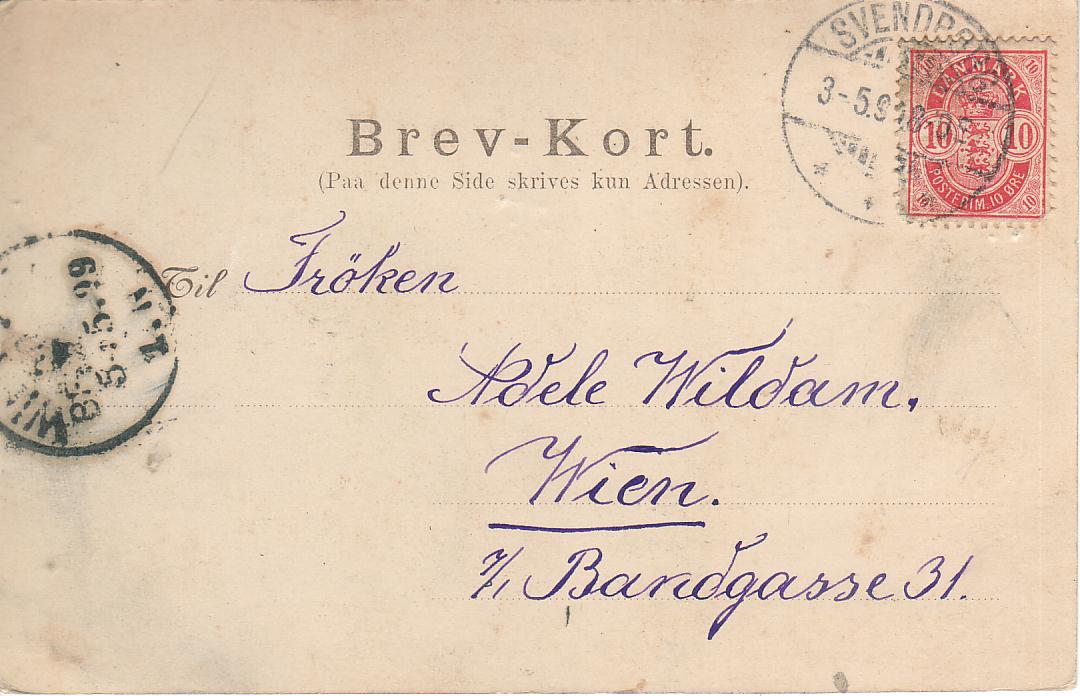 Brev-Kort.
(Paa denne Side skrives kun Adressen).
SVENDBORG
3-5.9
DANMARK
10 10
POSTFRIM. 10 ØRE
Til Fröken
Adele Wildam,
Wien.
7/1 Bandgasse 31.
WIEN
5.5.99